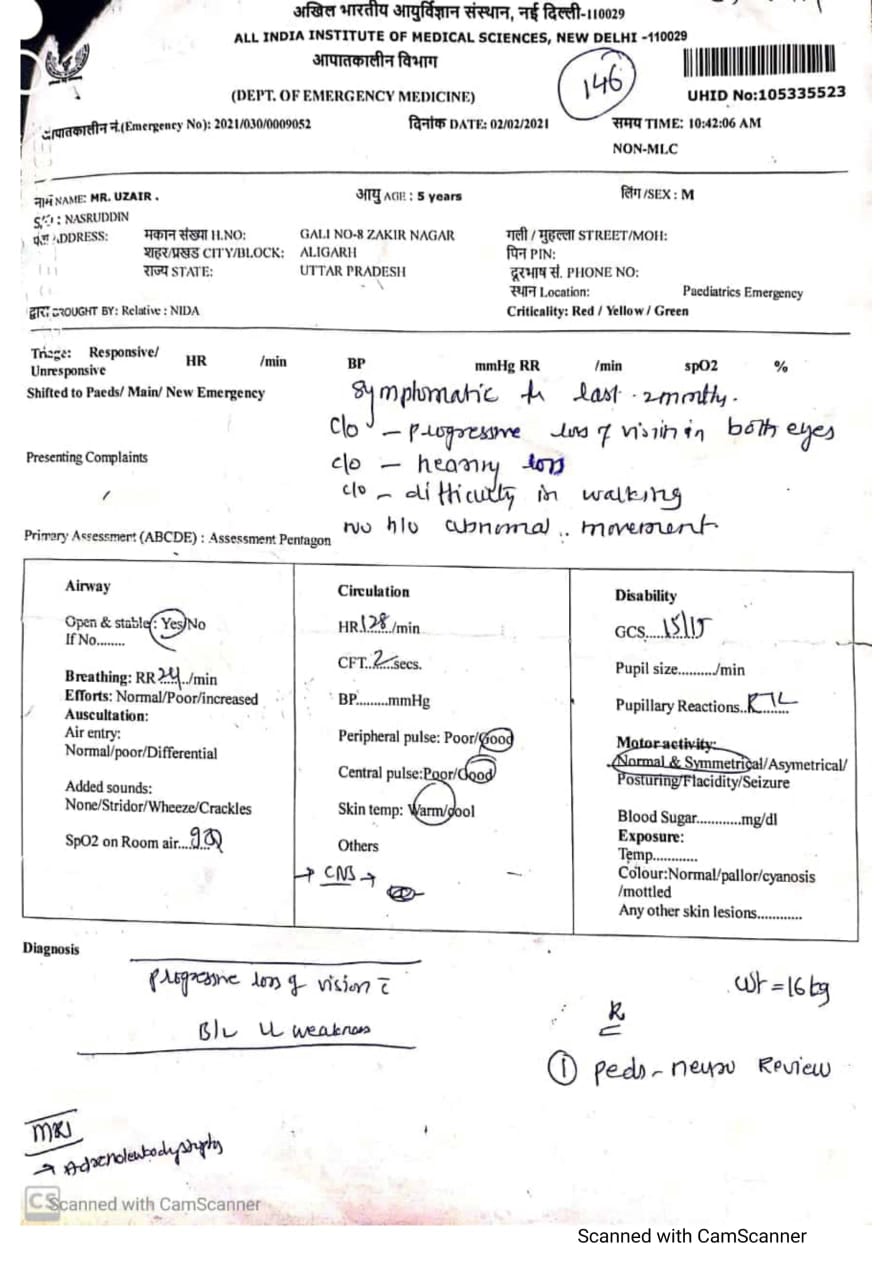 अखिल भारतीय आयुर्विज्ञान संस्थान, नई दिल्ली-110029
ALL INDIA INSTITUTE OF MEDICAL SCIENCES, NEW DELHI -110029
आपातकालीन विभाग
(DEPT. OF EMERGENCY MEDICINE)
146
UHID No:105335523
आपातकालीन नं.(Emergency No): 2021/030/0009052 दिनांक DATE: 02/02/2021 समय TIME: 10:42:06 AM
NON-MLC
नाम NAME: MR. UZAIR . आयु AGE : 5 years लिंग /SEX : M
: NASRUDDIN
ADDRESS: मकान संख्या H.NO: GALI NO-8 ZAKIR NAGAR गली / मुहल्ला STREET/MOH:
शहर/प्रखंड CITY/BLOCK: ALIGARH पिन PIN:
राज्य STATE: UTTAR PRADESH दूरभाष सं. PHONE NO:
स्थान Location: Paediatrics Emergency
द्वारा BROUGHT BY: Relative : NIDA Criticality: Red / Yellow / Green
Triage: Responsive/ HR /min BP mmHg RR /min spO2 %
Unresponsive
Shifted to Paeds/ Main/ New Emergency
Symptomatic last 2 months.
c/o - progressive loss of vision in both eyes
Presenting Complaints
c/o - hearing loss
c/o - difficulty in walking
no h/o abnormal movement
Primary Assessment (ABCDE) : Assessment Pentagon
Airway
Open & stable : Yes/No
If No........
Breathing: RR 24 /min
Efforts: Normal/Poor/increased
Auscultation:
Air entry:
Normal/poor/Differential
Added sounds:
None/Stridor/Wheeze/Crackles
SpO2 on Room air....
Circulation
HR 128 /min
CFT..2..secs.
BP.........mmHg
Peripheral pulse: Poor/Good
Central pulse:Poor/Good
Skin temp: Warm/cool
Others
→ CNS →
Disability
GCS.... 15/15
Pupil size........../min
Pupillary Reactions.. RTL
Motor activity:
Normal & Symmetrical/Asymetrical/
Posturing/Flacidity/Seizure
Blood Sugar............mg/dl
Exposure:
Temp............
Colour:Normal/pallor/cyanosis
/mottled
Any other skin lesions............
Diagnosis
progressive loss of vision c̄
B/L LL weakness
wt = 16 kg
Rx
① peds - neuro Review
MRI
→ Adrenoleukodystrophy
CS Scanned with CamScanner
Scanned with CamScanner